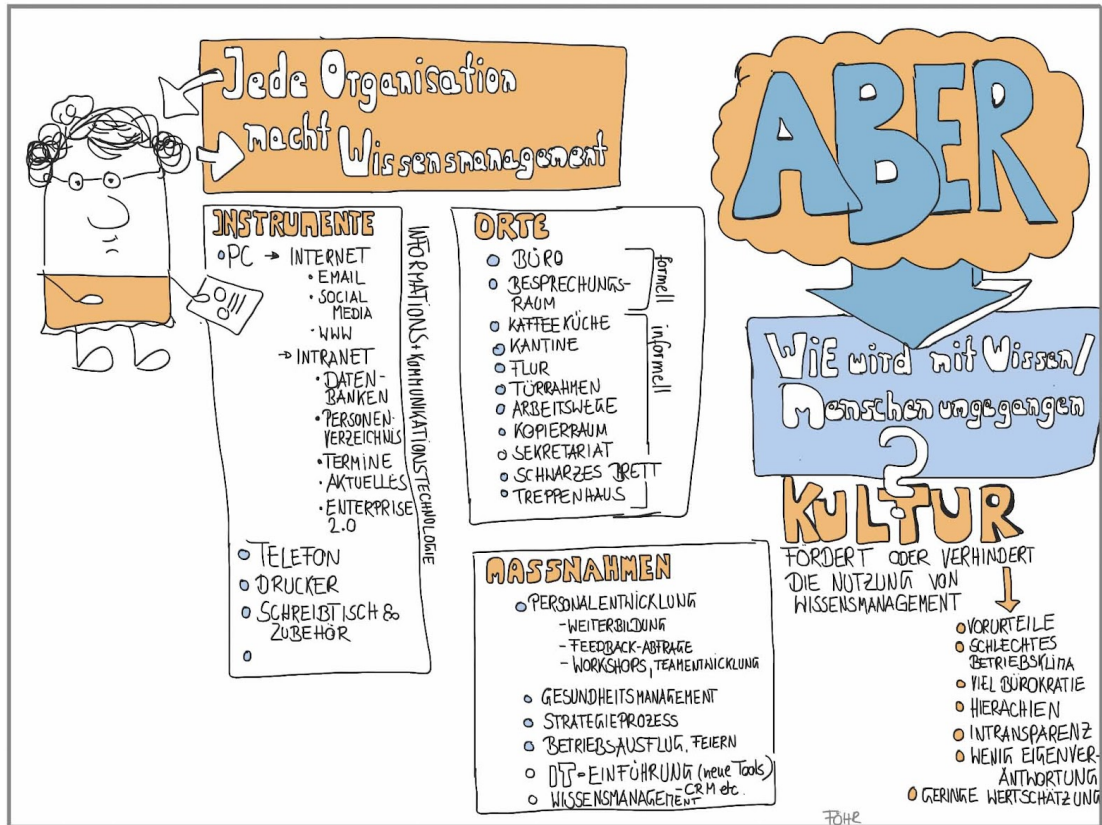 Jede Organisation
macht Wissensmanagement
INSTRUMENTE
PC → INTERNET
• EMAIL
• SOCIAL
MEDIA
• WWW
→ INTRANET
• DATEN-
BANKEN
• PERSONEN-
VERZEICHNIS
• TERMINE
• AKTUELLES
• ENTERPRISE
2.0
TELEFON
DRUCKER
SCHREIBTISCH &
ZUBEHÖR
INFORMATIONS + KOMMUNIKATIONSTECHNOLOGIE
ORTE
BÜRO
BESPRECHUNGS-
RAUM
formell
KAFFEEKÜCHE
KANTINE
FLUR
TÜRRAHMEN
ARBEITSWEGE
KOPIERRAUM
SEKRETARIAT
SCHWARZES BRETT
TREPPENHAUS
informell
MASSNAHMEN
PERSONALENTWICKLUNG
- WEITERBILDUNG
- FEEDBACK-ABFRAGE
- WORKSHOPS, TEAMENTWICKLUNG
GESUNDHEITSMANAGEMENT
STRATEGIEPROZESS
BETRIEBSAUSFLUG, FEIERN
IT-EINFÜHRUNG (neue Tools)
- CRM etc.
WISSENSMANAGEMENT
ABER
WIE wird mit Wissen/
Menschen umgegangen
?
KULTUR
FÖRDERT ODER VERHINDERT
DIE NUTZUNG VON
WISSENSMANAGEMENT
VORURTEILE
SCHLECHTES
BETRIEBSKLIMA
VIEL BÜROKRATIE
HIERACHIEN
INTRANSPARENZ
WENIG EIGENVER-
ANTWORTUNG
GERINGE WERTSCHÄTZUNG
FÖHR